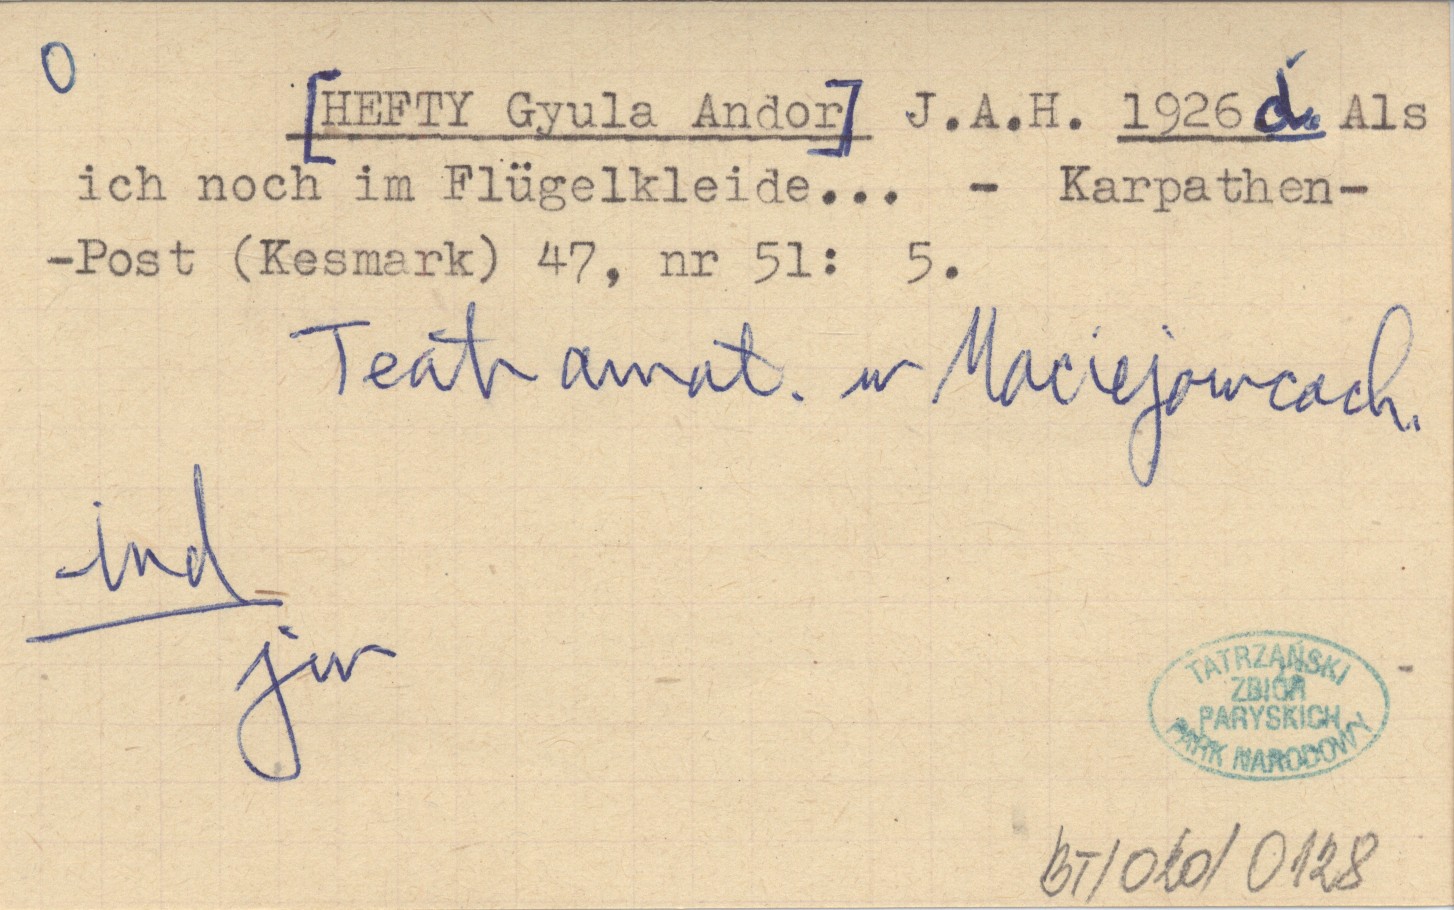 0
[HEFTY Gyula Andor] J.A.H. 1926 d. Als
ich noch im Flügelkleide... - Karpathen-
-Post (Kesmark) 47, nr 51: 5.
Teatr amat. w Maciejowcach.
ind
jw
TATRZAŃSKI
ZBIÓR
PARYSKICH
PARK NARODOWY
BT/020/0128